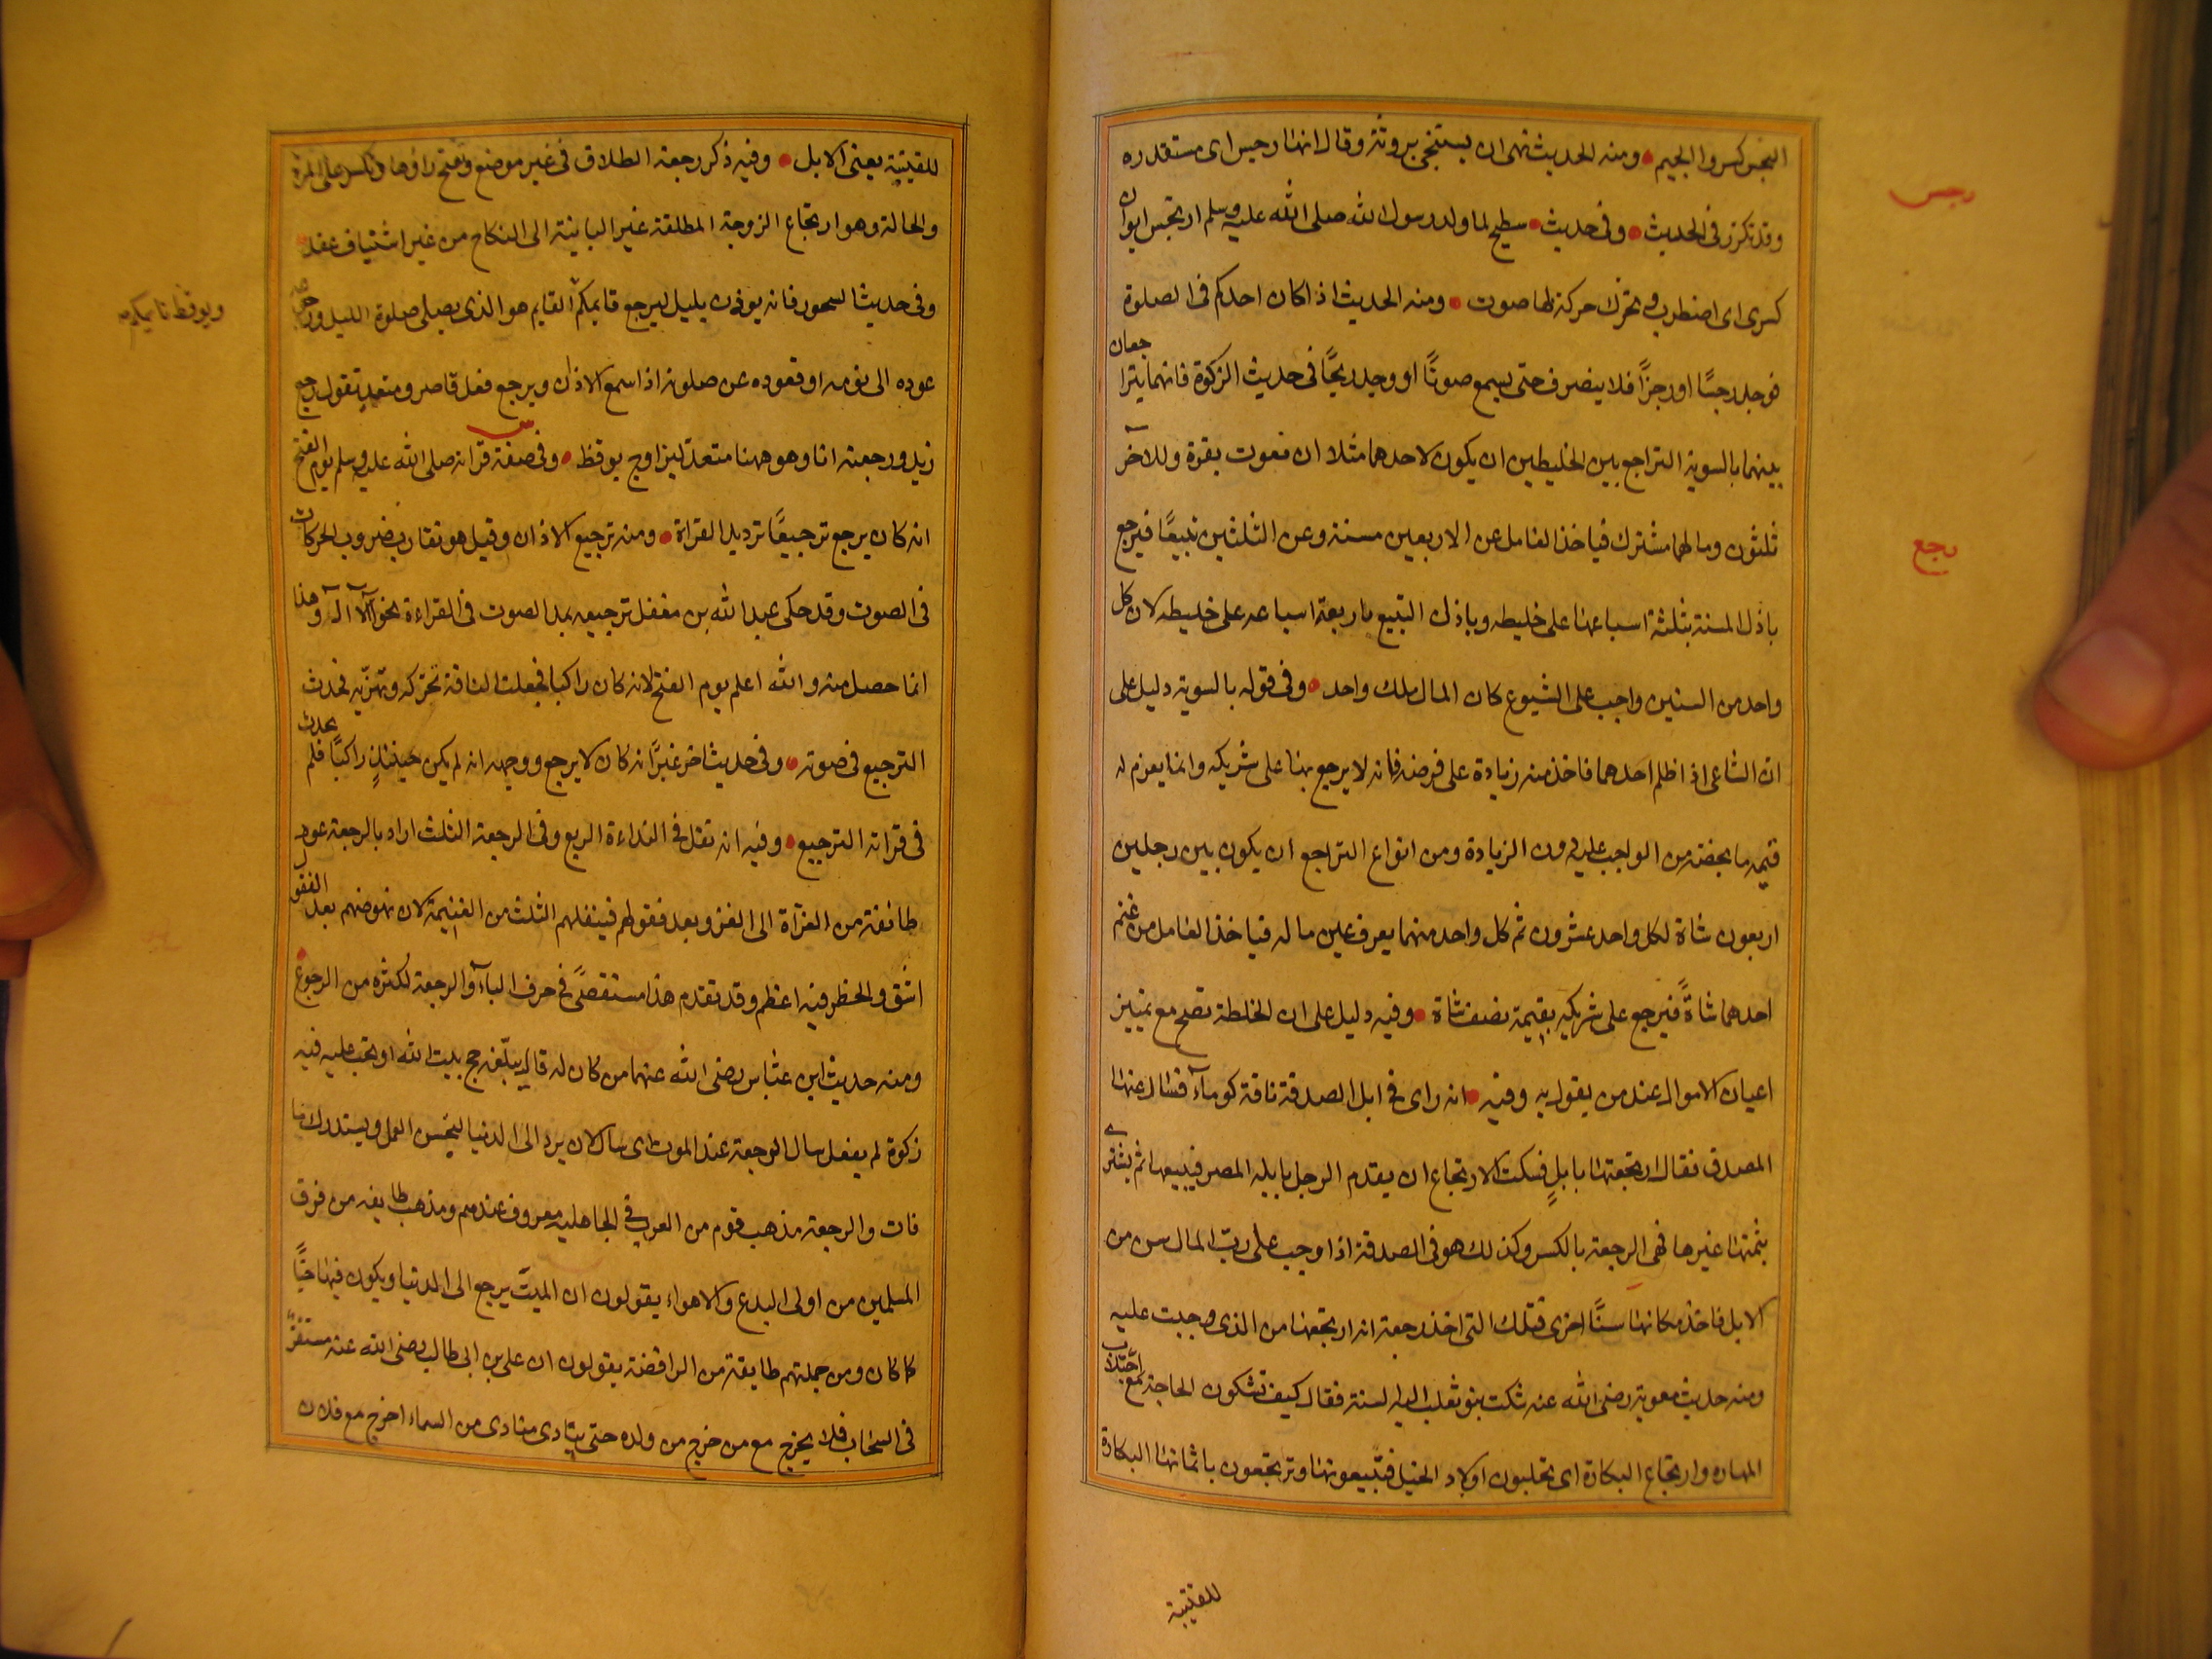 النجس كسروا الجيم ومنه الحديث نهى ان يستنجى بروثة وقال انها رجس اى مستقدره
رجس
وقد تكرر فى الحديث وفى حديث سطيح لما ولد رسول الله صلى الله عليه وسلم ارتجس ايوان
كسرى اى اضطرب وتحرك حركة لها صوت ومنه الحديث اذا كان احدكم فى الصلوة
فوجد رجسًا او رجزًا فلا ينصرف حتى يسمع صوتًا او وجد ريحًا فى حديث الزكوة فانهما يتراجعان
بينهما بالسوية التراجع بين الخليطين ان يكون لاحدهما مثلا ان بقرة وللآخر
رجع
ثلثون ومالهما مشترك فياخذ العامل عن الاربعين مسنة وعن الثلثين تبيعًا فيرجع
باذل المسنة بثلثة اسباعها على خليطه وباذل التبيع باربعة اسباعه على خليطه لان كل
واحد من السنين واجب على الشيوع كان المال ملك واحد وفى قوله بالسوية دليل على
ان الساعى اذا ظلم احدهما فاخذ منه زيادة على فرضه فانه لا يرجع بها على شريكه وانما يغرم له
قيمه ما يخصه من الواجب عليه دون الزيادة ومن انواع التراجع ان يكون بين رجلين
اربعون شاة لكل واحد عشرون ثم كل واحد منهما يعرف عين ماله فياخذ العامل من غنم
احدهما شاةً فيرجع على شريكه بقيمة نصف شاة وفيه دليل على ان الخلطة تصح مع تمييز
اعيان الاموال عند من يقول به وفيه انه راى فى ابل الصدقة ناقة كوماء فسال عنها
المصدق فقال ارتجعتها بابلٍ فسكت الارتجاع ان يقدم الرجل بابله المصر فيبيعها ثم يشترى
بثمنها غيرها فهى الرجعة بالكسر وكذلك هو فى الصدقة اذا وجب على رب المال سن من
الابل فاخذ مكانها سنًّا اخرى فتلك التى اخذ رجعة انه ارتجعها من الذى وجبت عليه
ومنه حديث معوية رضى الله عنه شكت بنو تغلب اليه السنة فقال كيف تشكون الحاجة مع اجتلاب
المهاره وارتجاع البكارة اى تجلبون اولاد الخيل فتبيعونها وترتجعون باثمانها البكارة
للقتيبة
للقنية يعنى الابل وفيه ذكر رجعة الطلاق فى غير موضع وتفتح راؤها وتكسر على المرة
والحالة وهو ارتجاع الزوجة المطلقة غير البائنة الى النكاح من غير استئناف عقد
وفى حديث السحور فانه يوذن بليل ليرجع قايمكم القايم هو الذى يصلى صلوة الليل ورجوعه
ويوقظ نايمكم
عوده الى نومه او قعوده عن صلوته اذا سمع الاذان ويرجع فعل قاصر ومتعد تقول رجع
زيد ورجعته انا وهو ههنا متعد ليزاوج يوقظ وفى صفة قراته صلى الله عليه وسلم يوم الفتح
انه كان يرجع ترجيعًا ترديد القراة ومنه ترجيع الاذان وقيل هو تقارب ضروب الحركات
فى الصوت وقد حكى عبد الله بن مغفل ترجيعه بمد الصوت فى القراءة نحو آآآ وهذا
انما حصل منه والله اعلم يوم الفتح لانه كان راكبا فجعلت الناقة تحركه وتهزيه فحدث
الترجيع فى صوته وفى حديث اخر غير انه كان لا يرجع ووجهه انه لم يكن حينئذٍ راكبًا فلم يحدث
فى قراته الترجيع وفيه انه نفل فى البداءة الربع وفى الرجعة الثلث اراد بالرجعة عود
طائفة من الغزاة الى الغزو بعد قفولهم فينفلهم الثلث من الغنيمة لان نهوضهم بعد القفول
اشق والخطر فيه اعظم وقد تقدم هذا مستقصًى فى حرف الباء والرجعة لكثره من الرجوع
ومنه حديث ابن عباس رضى الله عنهما من كان له قال يبلغه حج بيت الله او تجب عليه فيه
زكوة لم يفعل سال الرجعة عند الموت اى سال ان يرد الى الدنيا ليحسن العمل ويستدرك ما
فات والرجعة مذهب قوم من العرب فى الجاهلية معروف عندهم ومذهب طايفه من فرق
المسلمين من اولى البدع والاهواء يقولون ان الميت يرجع الى الدنيا ويكون فيها حيًّا
كما كان ومن جملتهم طايفة من الرافضة يقولون ان على بن ابى طالب رضى الله عنه مستتر
فى السحاب فلا يخرج مع من خرج من ولده حتى ينادى منادى من السماء اخرج مع فلان